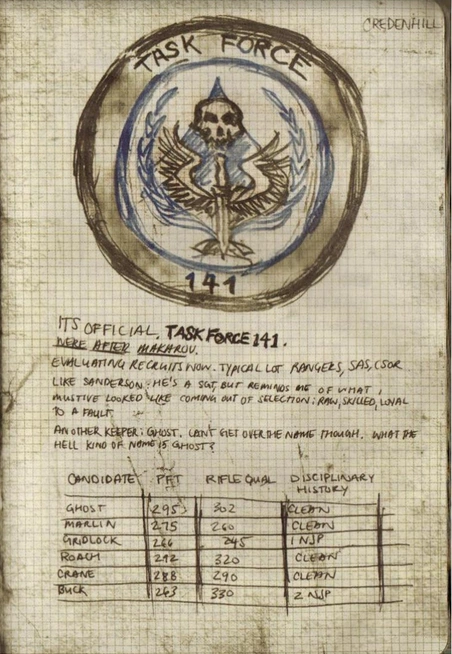 CREDENHILL
TASK FORCE
141
ITS OFFICIAL. TASK FORCE 141.
WERE AFTER MAKAROV.
EVALUATING RECRUITS NOW. TYPICAL LOT RANGERS, SAS, CSOR
LIKE SANDERSON: HE'S A SGT, BUT REMINDS ME OF WHAT I
MUSTIVE LOOKED LIKE COMING OUT OF SELECTION: RAW, SKILLED, LOYAL
TO A FAULT.
ANOTHER KEEPER: GHOST. CAN'T GET OVER THE NAME THOUGH. WHAT THE
HELL KIND OF NAME IS GHOST?
CANDIDATE PFT RIFLE QUAL DISCIPLINARY
HISTORY
GHOST 295 302 CLEAN
MARLIN 275 260 CLEAN
GRIDLOCK 266 245 1 NJP
ROACH 292 320 CLEAN
CRANE 288 290 CLEAN
BUCK 263 330 2 NJP